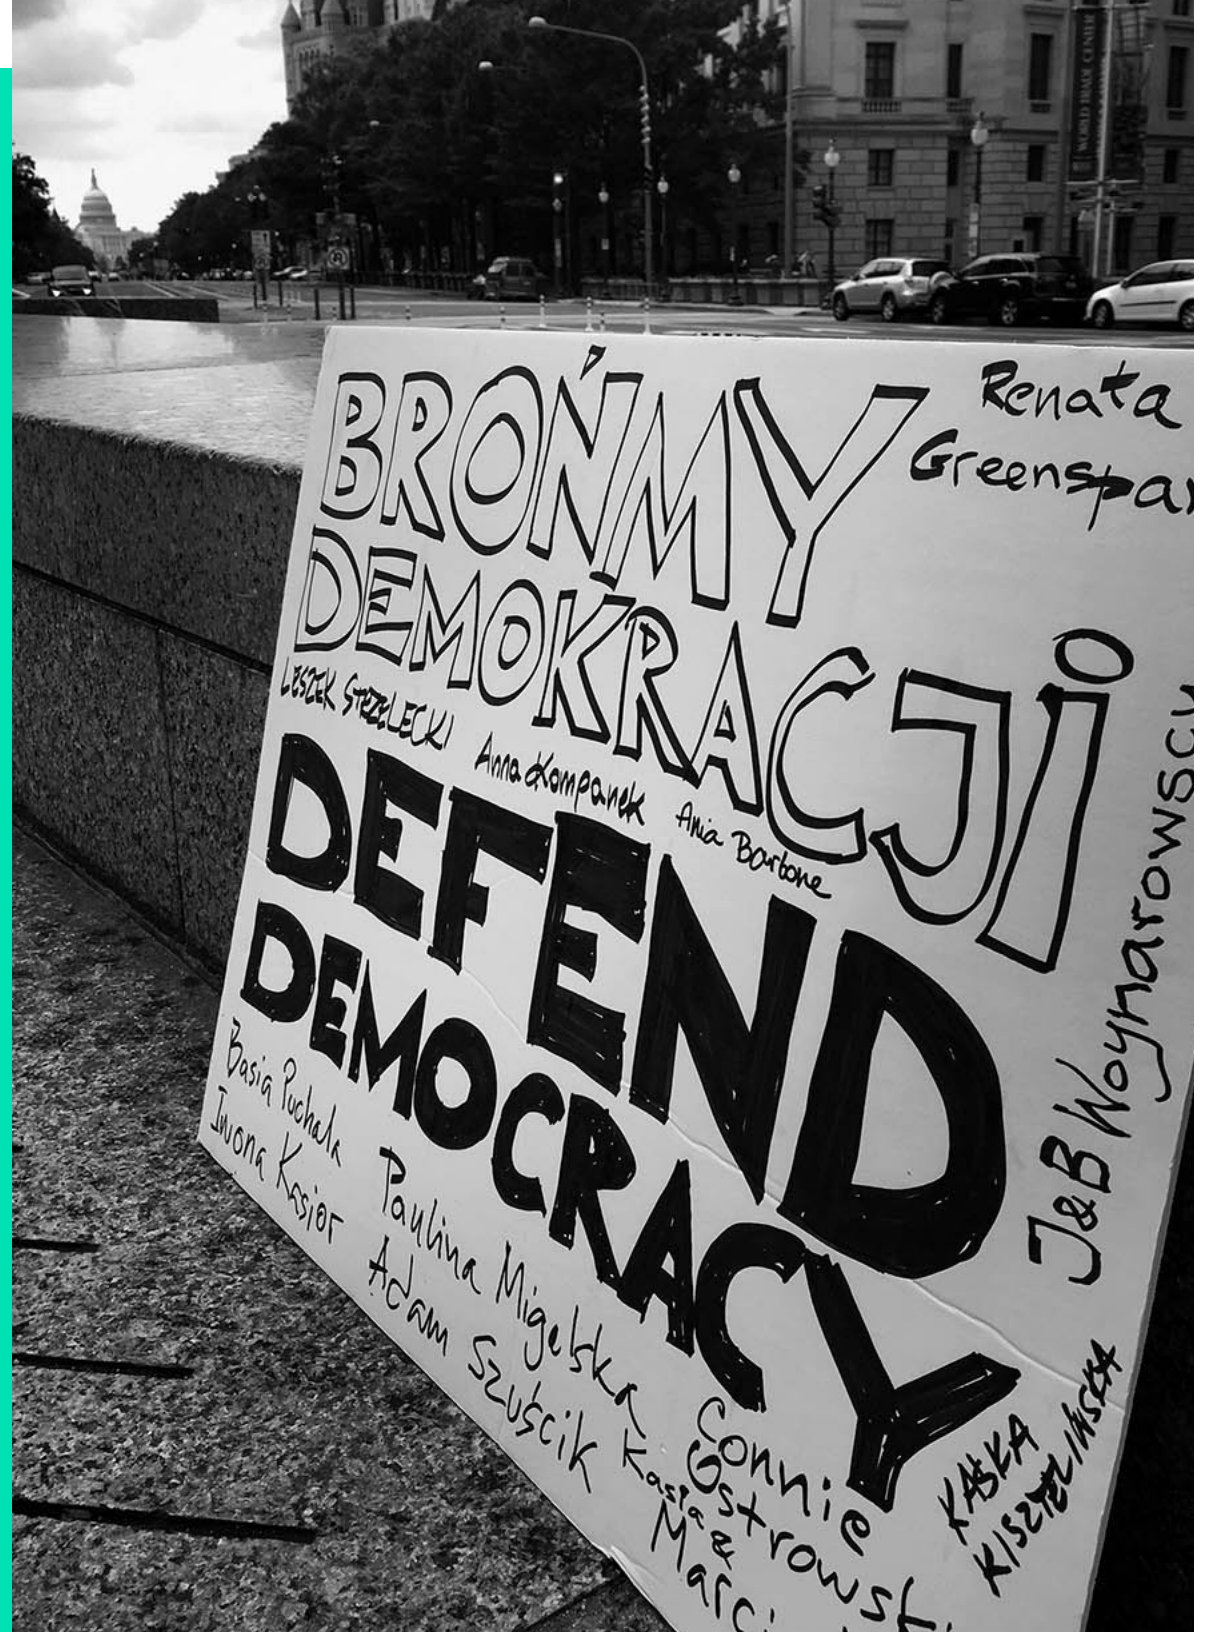 WORLD TRADE CENTER
BROŃMY
DEMOKRACJI
Renata
Greenspa
LESZEK STRZELECKI
Anna Kompanek
Ania Barbone
DEFEND
DEMOCRACY
J&B Woynarowscy
Basia Puchala
Iwona Kasior
Paulina Migelska
Adam Szuścik
Connie
Ostrowski
Kasia &
Marci
KAŚKA
KISZTELIŃSKA